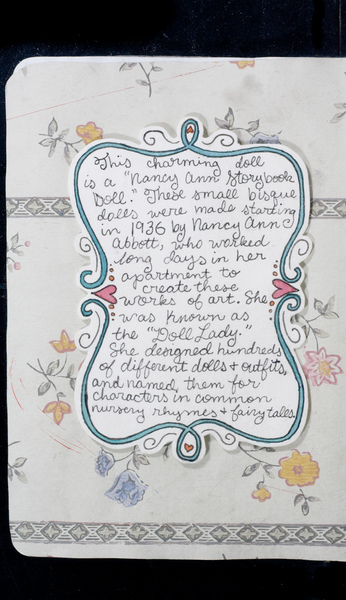 This charming doll
is a "Nancy Ann Storybook
Doll." These small bisque
dolls were made starting
in 1936 by Nancy Ann
Abbott, who worked
long days in her
apartment to
create these
works of art. She
was known as
the "Doll Lady."
She designed hundreds
of different dolls + outfits,
and named them for
characters in common
nursery rhymes + fairy tales.